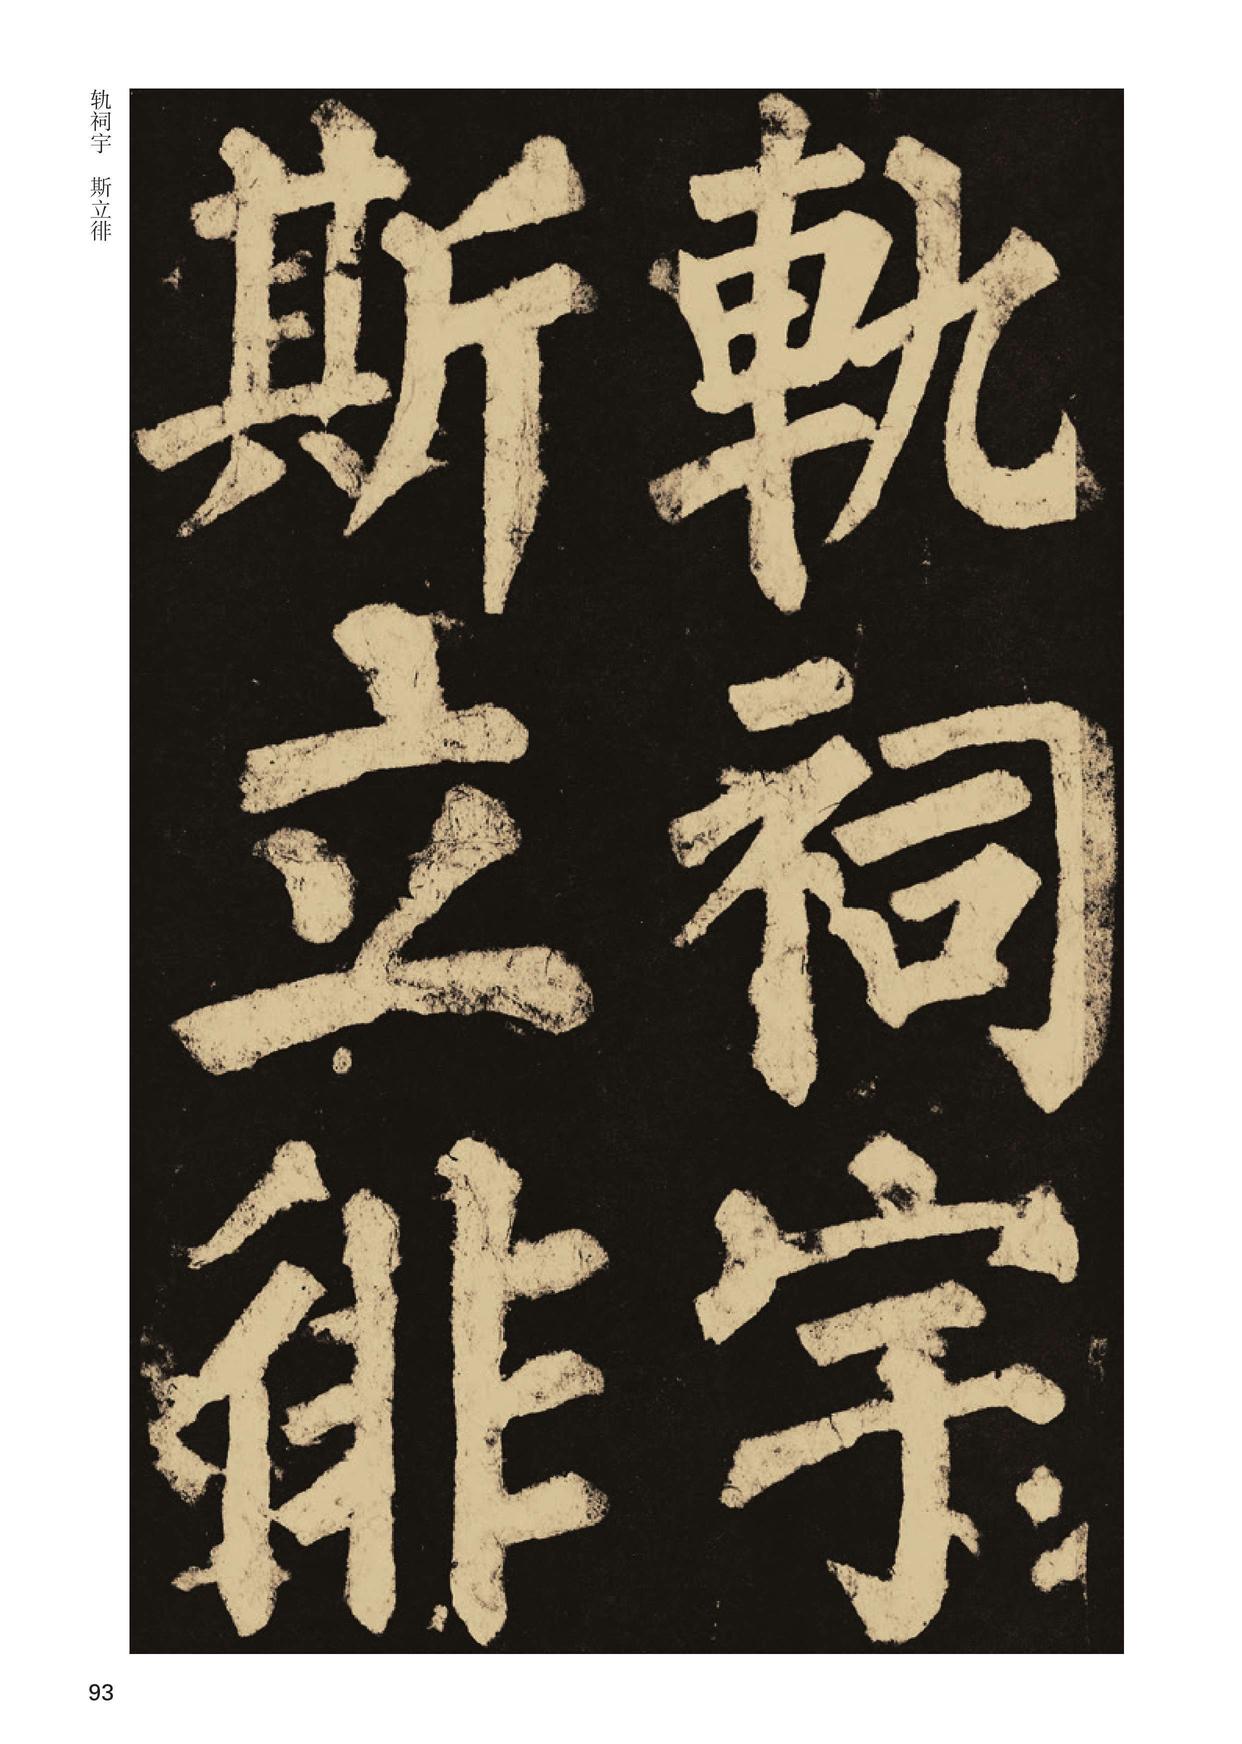 軌祠宇
斯立徘
轨祠宇 斯立徘
93